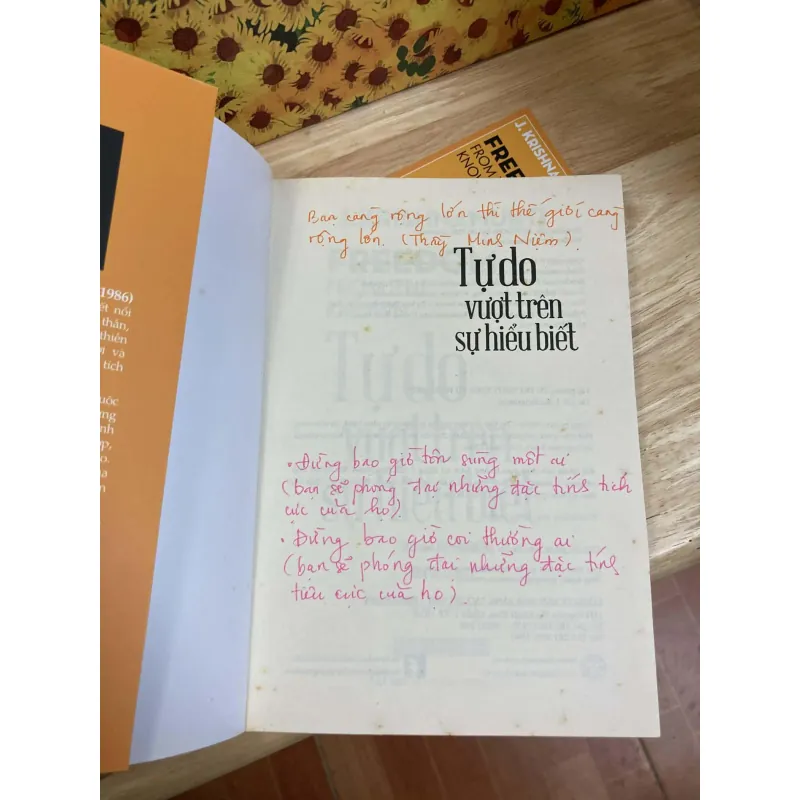 1986)
ết nối
thần,
thiền
ới và
tích
uộc
ơng
nh
ợp,
o.
na
m
J. KRISHNA
FREE
FROM
KNO
Bạn càng rộng lớn thì thế giới càng
rộng lớn. (Thầy Minh Niệm).
Tự do
vượt trên
sự hiểu biết
• Đừng bao giờ tôn sùng một ai
(bạn sẽ phóng đại những đặc tính tích
cực của họ).
• Đừng bao giờ coi thường ai
(bạn sẽ phóng đại những đặc tính
tiêu cực của họ).